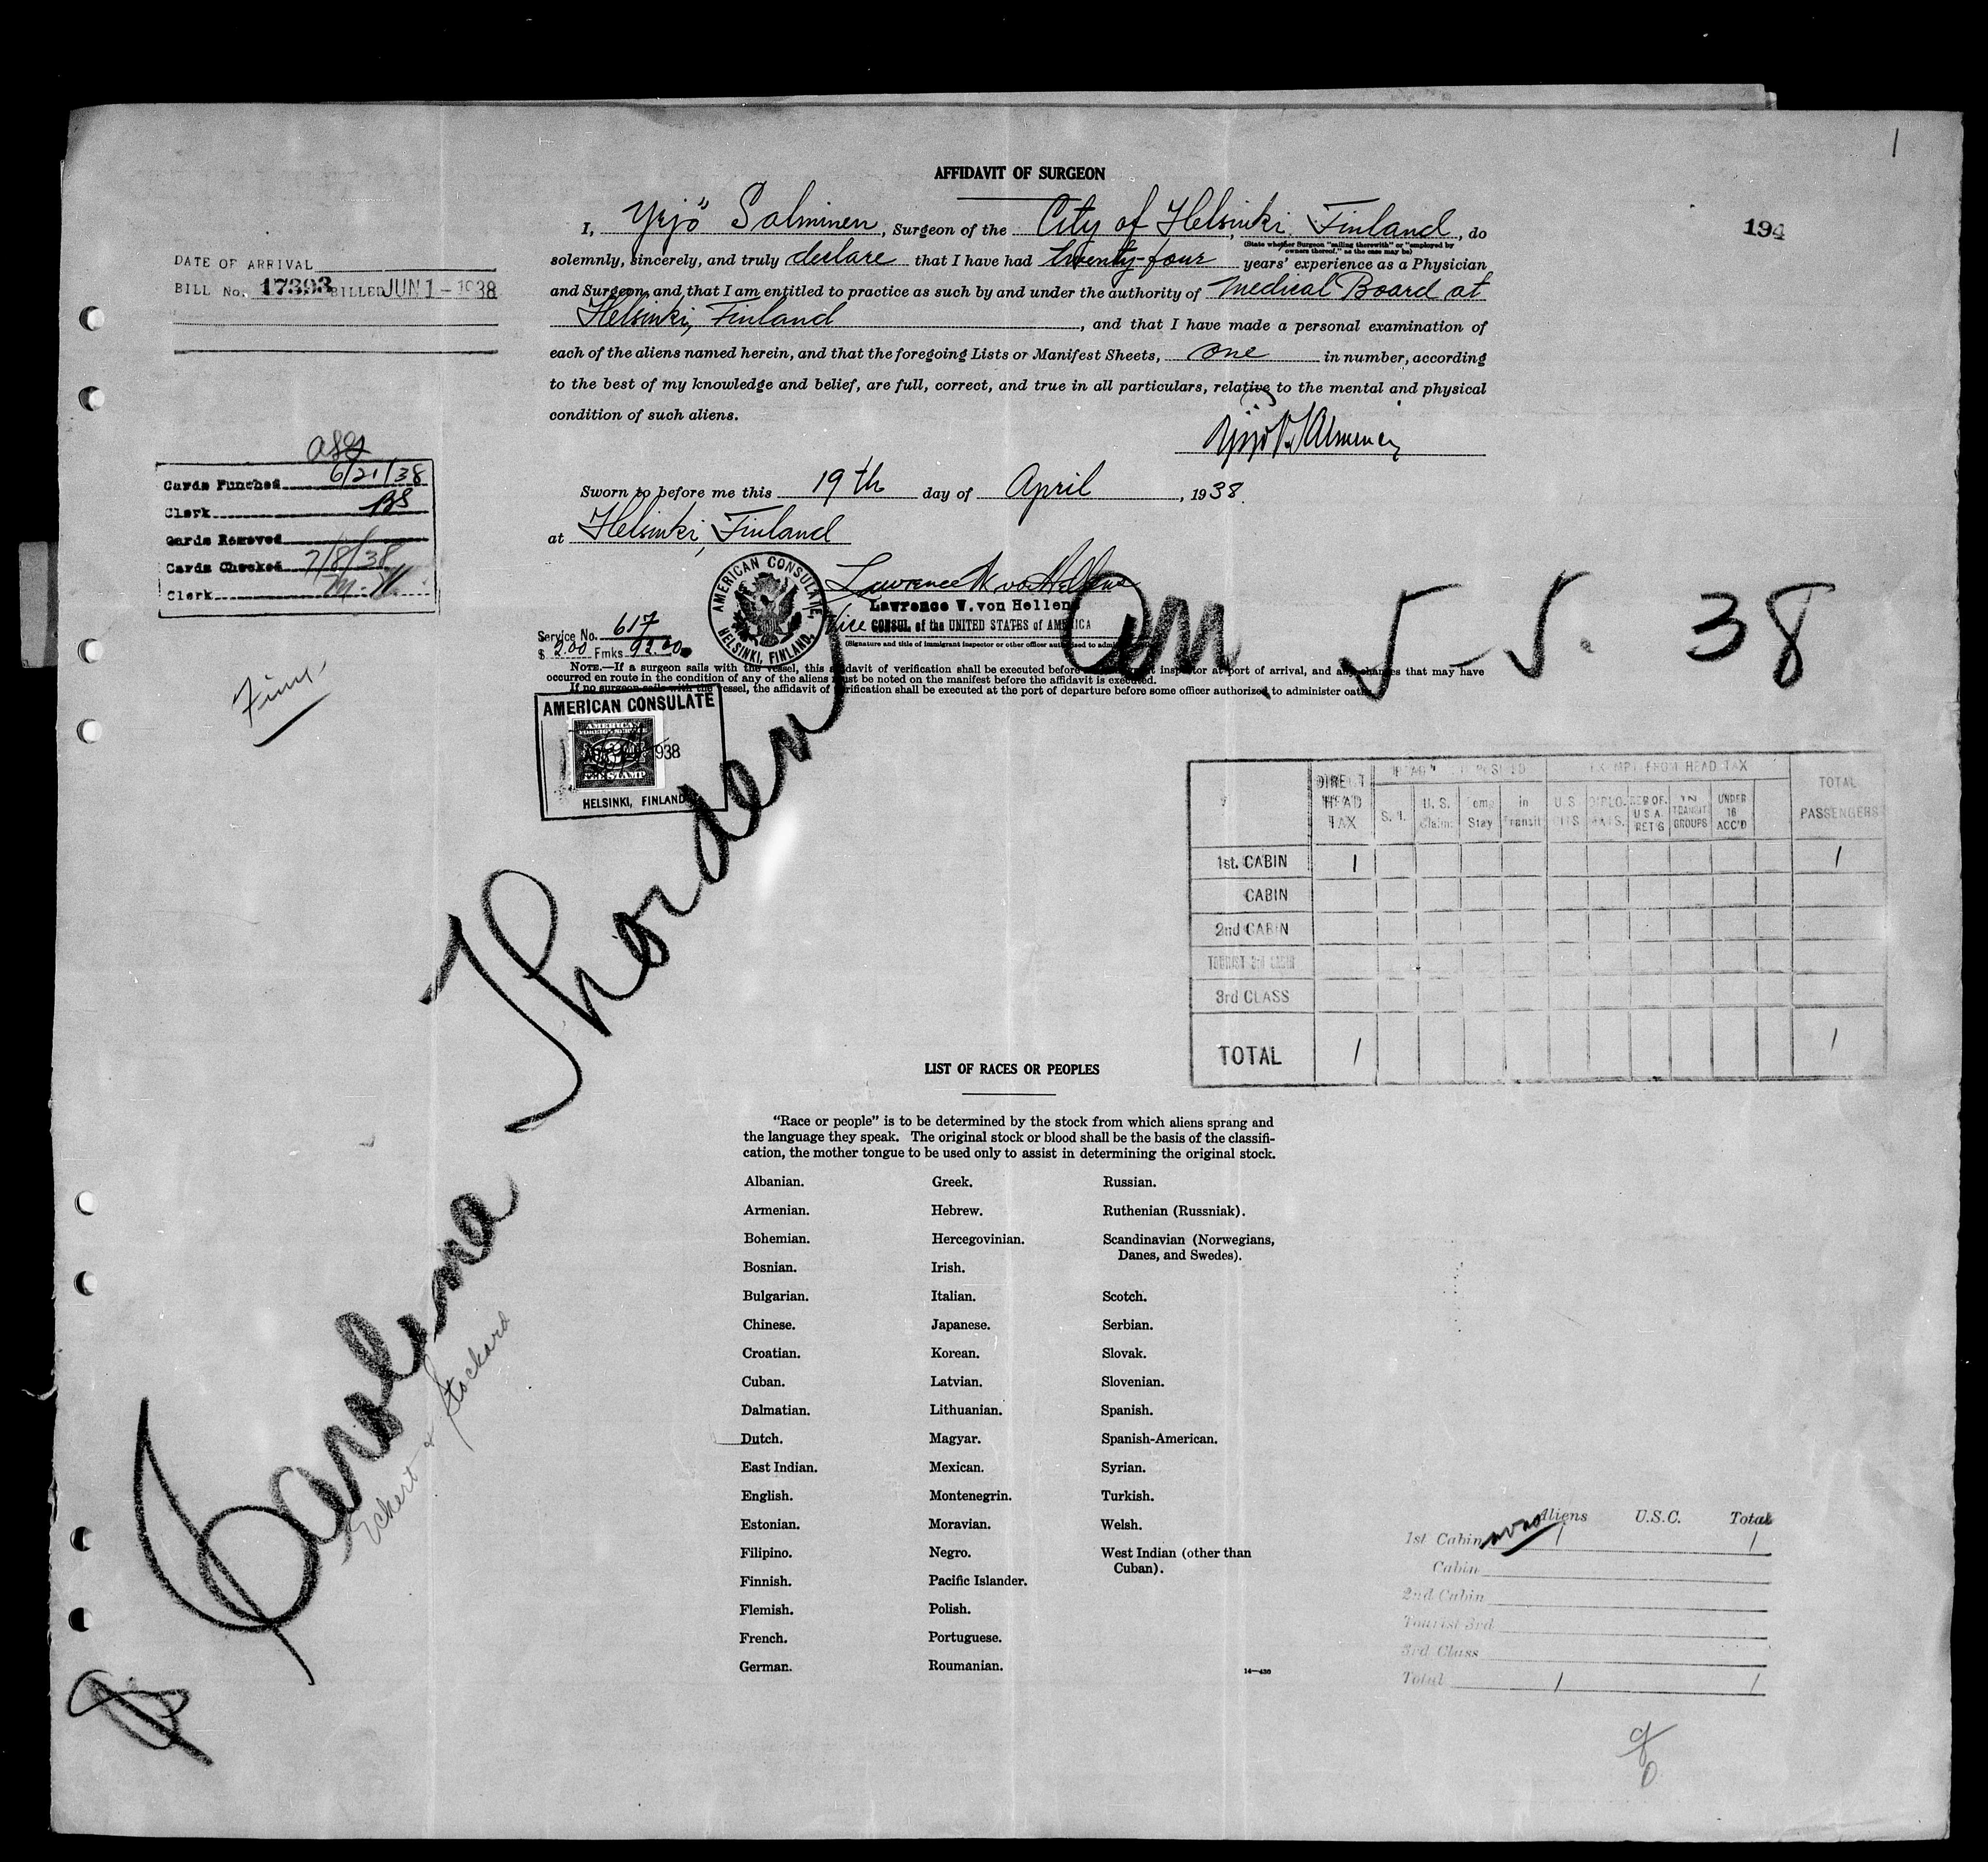 1
AFFIDAVIT OF SURGEON
194
I, Yrjö Salminen, Surgeon of the City of Helsinki, Finland, do
(State whether Surgeon "sailing therewith" or "employed by
owners thereof," as the case may be)
solemnly, sincerely, and truly declare that I have had twenty-four years' experience as a Physician
and Surgeon, and that I am entitled to practice as such by and under the authority of Medical Board at
Helsinki, Finland, and that I have made a personal examination of
each of the aliens named herein, and that the foregoing Lists or Manifest Sheets, one in number, according
to the best of my knowledge and belief, are full, correct, and true in all particulars, relative to the mental and physical
condition of such aliens.
DATE OF ARRIVAL
BILL No. 17393 BILLED JUN 1 - 1938
Cards Punched 6/21/38
Clerk BS
Cards Removed
Cards Checked 7/8/38
Clerk M.W.
Sworn to before me this 19th day of April, 1938.
at Helsinki, Finland
AMERICAN CONSULATE
HELSINKI, FINLAND.
Lawrence W. von Hellens
Lawrence W. von Hellens
Vice CONSUL of the UNITED STATES of AMERICA
(Signature and title of immigrant inspector or other officer authorized to
Service No. 617
$ 2.00 Fmks 92.00
5-5. 38
NOTE.—If a surgeon sails with the vessel, this affidavit of verification shall be executed before inspector at port of arrival, and any changes that may have
occurred en route in the condition of any of the aliens must be noted on the manifest before the affidavit is executed.
If no surgeon sails with the vessel, the affidavit of verification shall be executed at the port of departure before some officer authorized to administer oaths
AMERICAN CONSULATE
AMERICAN
FOREIGN SERVICE
1938
FEE STAMP
HELSINKI, FINLAND
Carolina Thorden
Eckert & Stockard
DIRECT HEAD TAX
EXEMPT FROM HEAD TAX
TOTAL PASSENGERS
S.I.
U.S. Claim:
Temp Stay
in Transit
U.S. CITS
DIPLO. MATS.
RES OF. U S A. RET'S
IN TRANSIT GROUPS
UNDER 16 ACC'D
1st. CABIN 1 1
CABIN
2nd CABIN
TOURIST 3rd CABIN
3rd CLASS
TOTAL 1 1
LIST OF RACES OR PEOPLES
"Race or people" is to be determined by the stock from which aliens sprang and
the language they speak. The original stock or blood shall be the basis of the classifi-
cation, the mother tongue to be used only to assist in determining the original stock.
Albanian.
Armenian.
Bohemian.
Bosnian.
Bulgarian.
Chinese.
Croatian.
Cuban.
Dalmatian.
Dutch.
East Indian.
English.
Estonian.
Filipino.
Finnish.
Flemish.
French.
German.
Greek.
Hebrew.
Hercegovinian.
Irish.
Italian.
Japanese.
Korean.
Latvian.
Lithuanian.
Magyar.
Mexican.
Montenegrin.
Moravian.
Negro.
Pacific Islander.
Polish.
Portuguese.
Roumanian.
Russian.
Ruthenian (Russniak).
Scandinavian (Norwegians,
Danes, and Swedes).
Scotch.
Serbian.
Slovak.
Slovenian.
Spanish.
Spanish-American.
Syrian.
Turkish.
Welsh.
West Indian (other than
Cuban).
14—430
Aliens U.S.C. Total
1st Cabin 1 1
Cabin
2nd Cabin
Tourist 3rd
3rd Class
Total 1 1